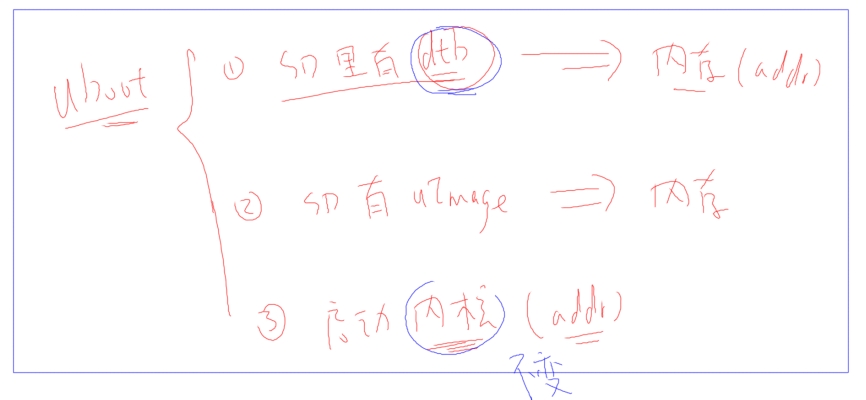 uboot
① SD里有dtb ⇒ 内存(addr)
② SD有uImage ⇒ 内存
③ 启动内核(addr)
不变